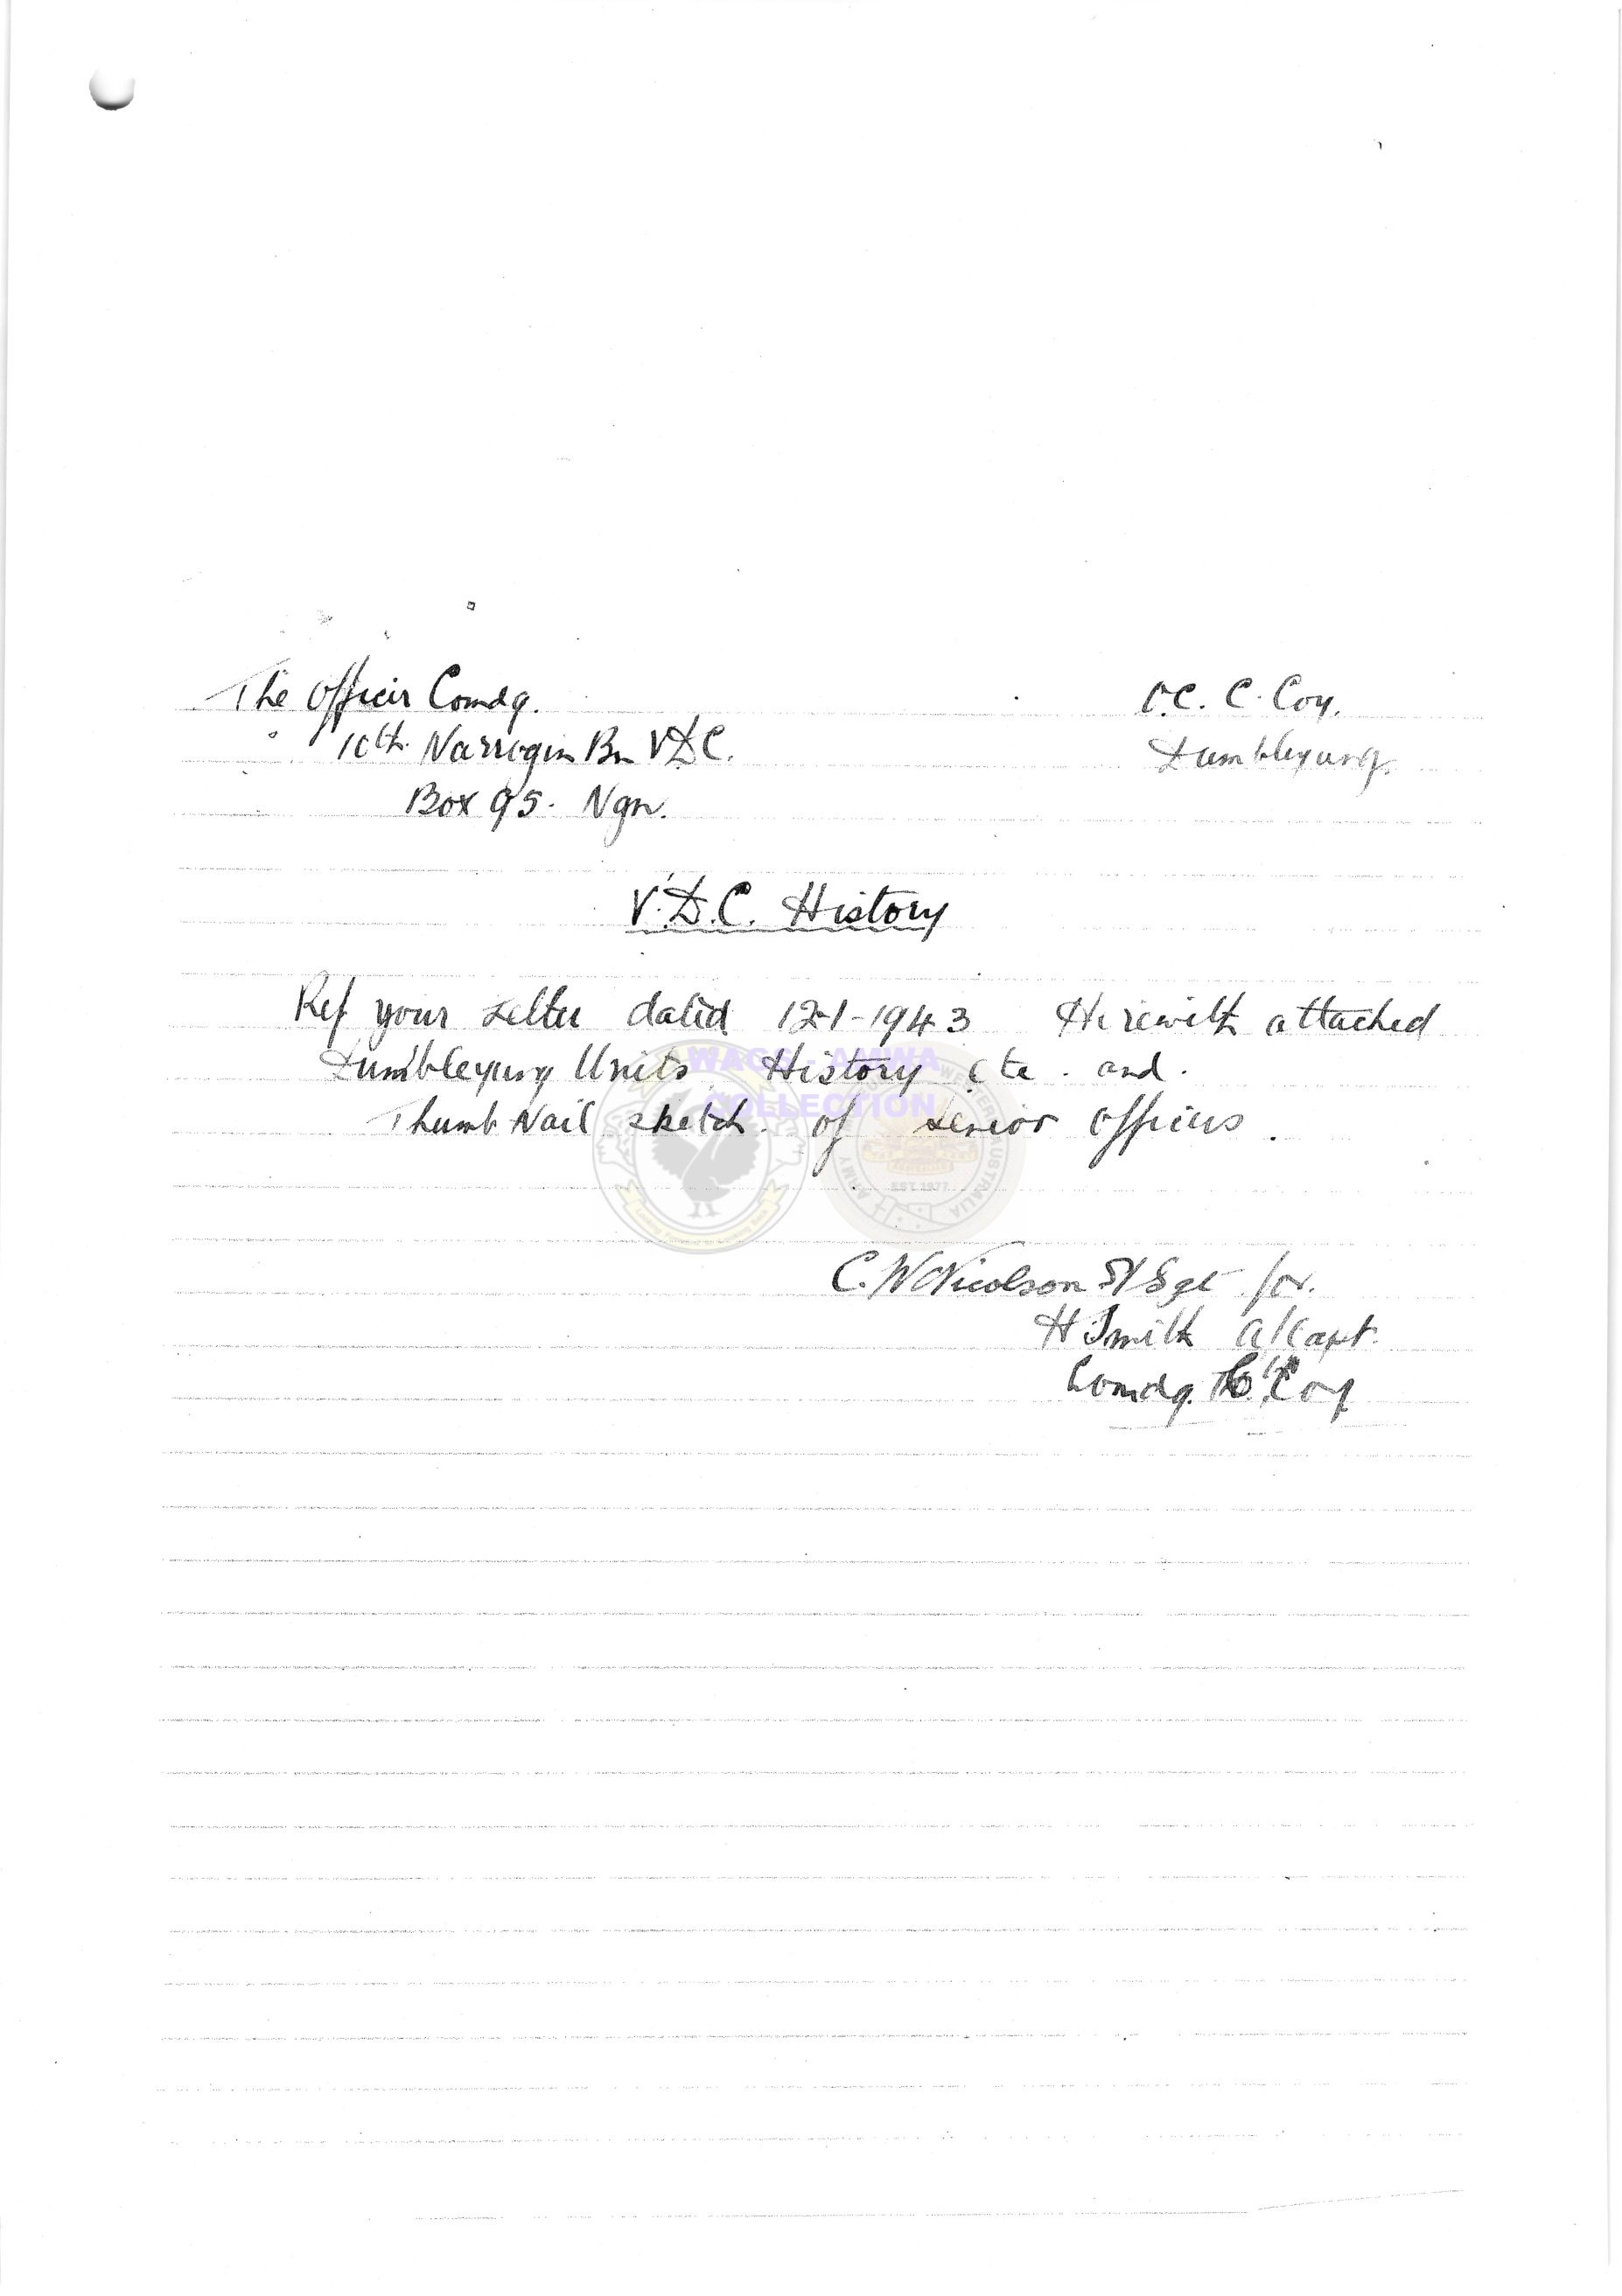 The Officer Comdg.
O.C. C. Coy.
10th. Narrogin Bn V.D.C.
Dumbleyung.
Box 95. Ngn.
V.D.C. History
Ref your Letter dated 12-1-1943 Herewith attached
Dumbleyung Units History etc. and.
WAGS - AMWA
COLLECTION
Thumb Nail sketch. of senior officers.
EST 1977
C. W Nicolson S/Sgt for.
H Smith A/Capt.
Comdg. "C" Coy